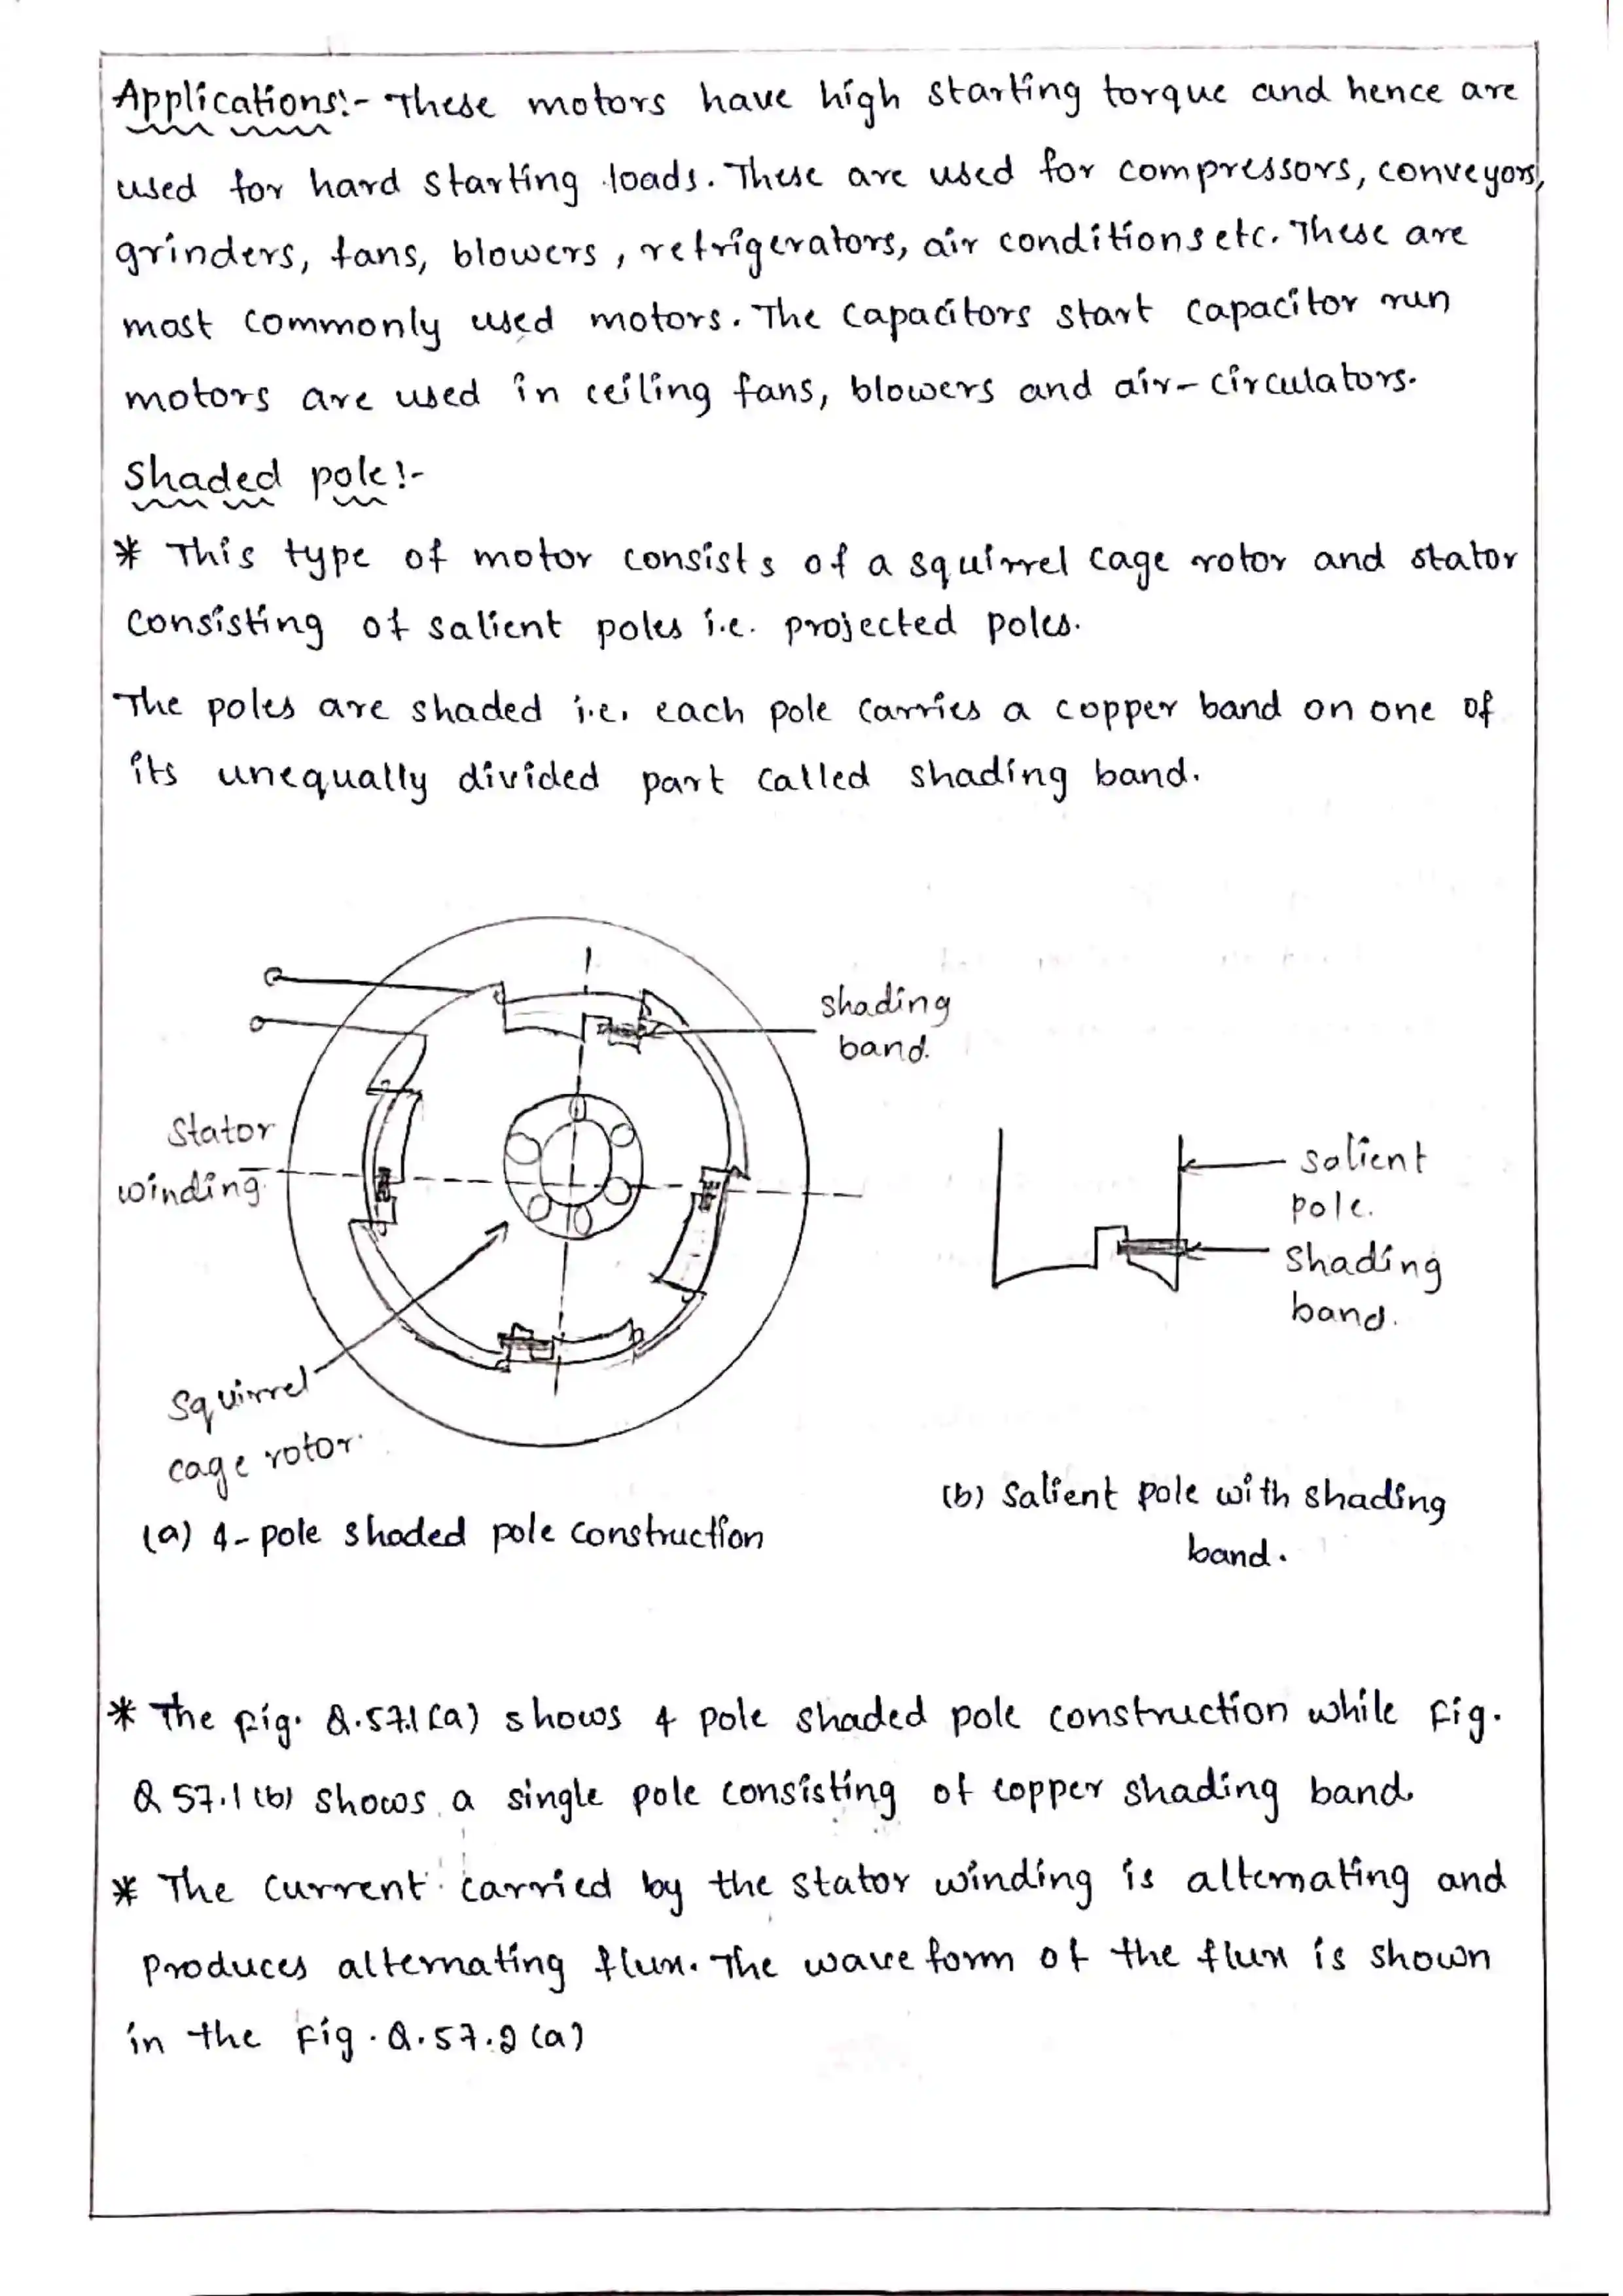 Applications:- These motors have high starting torque and hence are
used for hard starting loads. These are used for compressors, conveyors,
grinders, fans, blowers, refrigerators, air conditions etc. These are
most commonly used motors. The capacitors start capacitor run
motors are used in ceiling fans, blowers and air-circulators.
Shaded pole:-
* This type of motor consists of a squirrel cage rotor and stator
consisting of salient poles i.e. projected poles.
The poles are shaded i.e. each pole carries a copper band on one of
its unequally divided part called shading band.
shading
band.
Stator
winding
salient
pole.
shading
band.
Squirrel
cage rotor.
(a) 4-pole shaded pole construction
(b) Salient pole with shading
band.
* The fig. Q.57.1(a) shows 4 pole shaded pole construction while Fig.
Q 57.1(b) shows a single pole consisting of copper shading band.
* The current carried by the stator winding is alternating and
produces alternating flux. The wave form of the flux is shown
in the Fig. Q.57.2 (a)